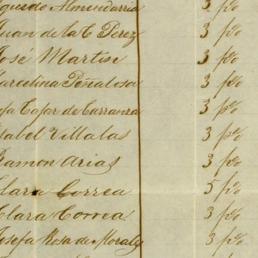 Almendarria 3 p%
Juan de la C Perez 3 p%
José Martin 3 p%
Marcelina Peñalosa 3 p%
Tafor de Carranza 3 p%
Isabel Villalas 3 p%
Ramon Arias 3 p%
Clara Correa 5 p%
Clara Correa 3 p%
Josefa Rosa de Morales 3 p%